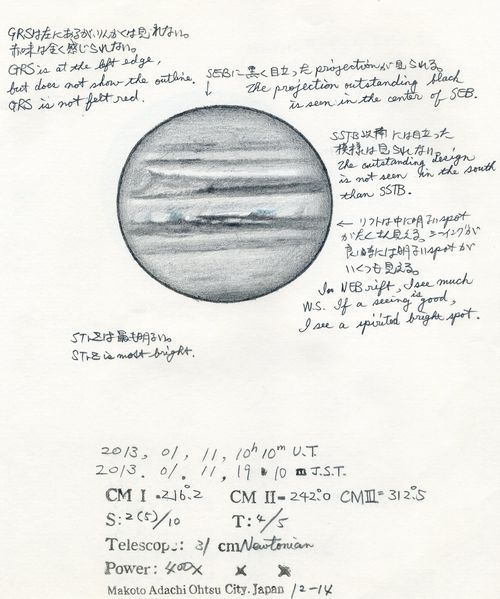 GRSは左にあるが、りんかくは見れない。
赤味は全く感じられない。
GRS is at the left edge,
but does not show the outline.
GRS is not felt red.
SEBに黒く目立ったprojectionが見られる。
↓ The projection outstanding black
is seen in the center of SEB.
SSTB以南には目立った
模様は見られない。
The outstanding design
is not seen in the south
than SSTB.
← リフトは中に明るいspot
がたくさん見える。シーイングが
良い時には明るいspotが
いくつも見える。
In NEB rift, I see much
W.S. If a seeing is good,
I see a spirited bright spot.
STrZは最も明るい。
STrZ is most bright.
2013, 01, 11, 10h 10m U.T.
2013. 01. 11, 19 10 m J.S.T.
CM I = 216.°2 CM II = 242.°0 CM III = 312.°5
S: 2(5)/10 T: 4/5
Telescope: 31 cm Newtonian
Power: 400x x x
Makoto Adachi Ohtsu City. Japan 12-14